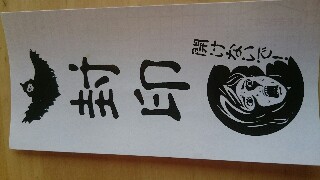 封印
開けないで！